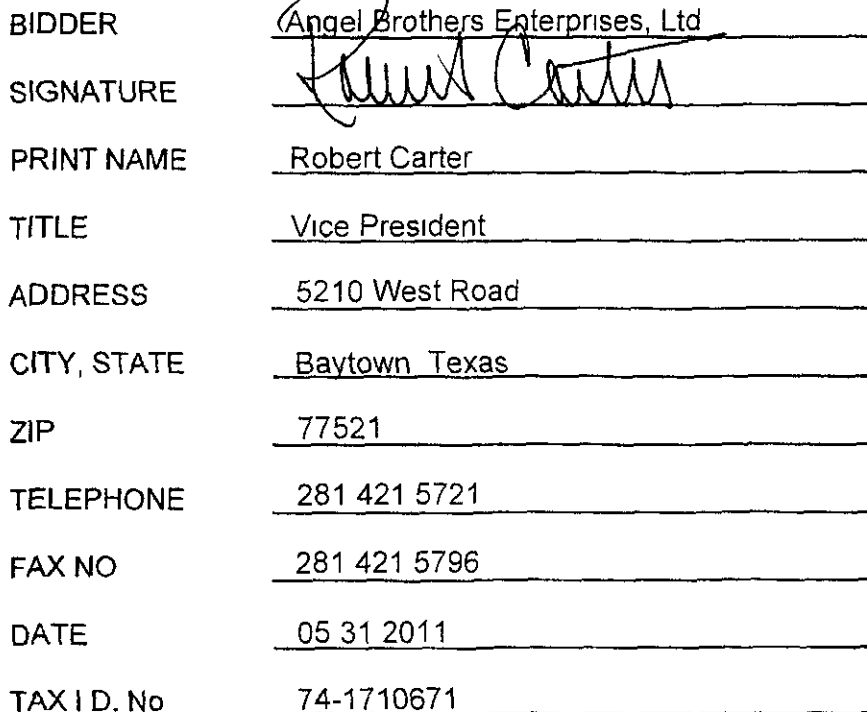 BIDDER Angel Brothers Enterprises, Ltd
SIGNATURE Robert Carter
PRINT NAME Robert Carter
TITLE Vice President
ADDRESS 5210 West Road
CITY, STATE Baytown Texas
ZIP 77521
TELEPHONE 281 421 5721
FAX NO 281 421 5796
DATE 05 31 2011
TAX I D. No 74-1710671